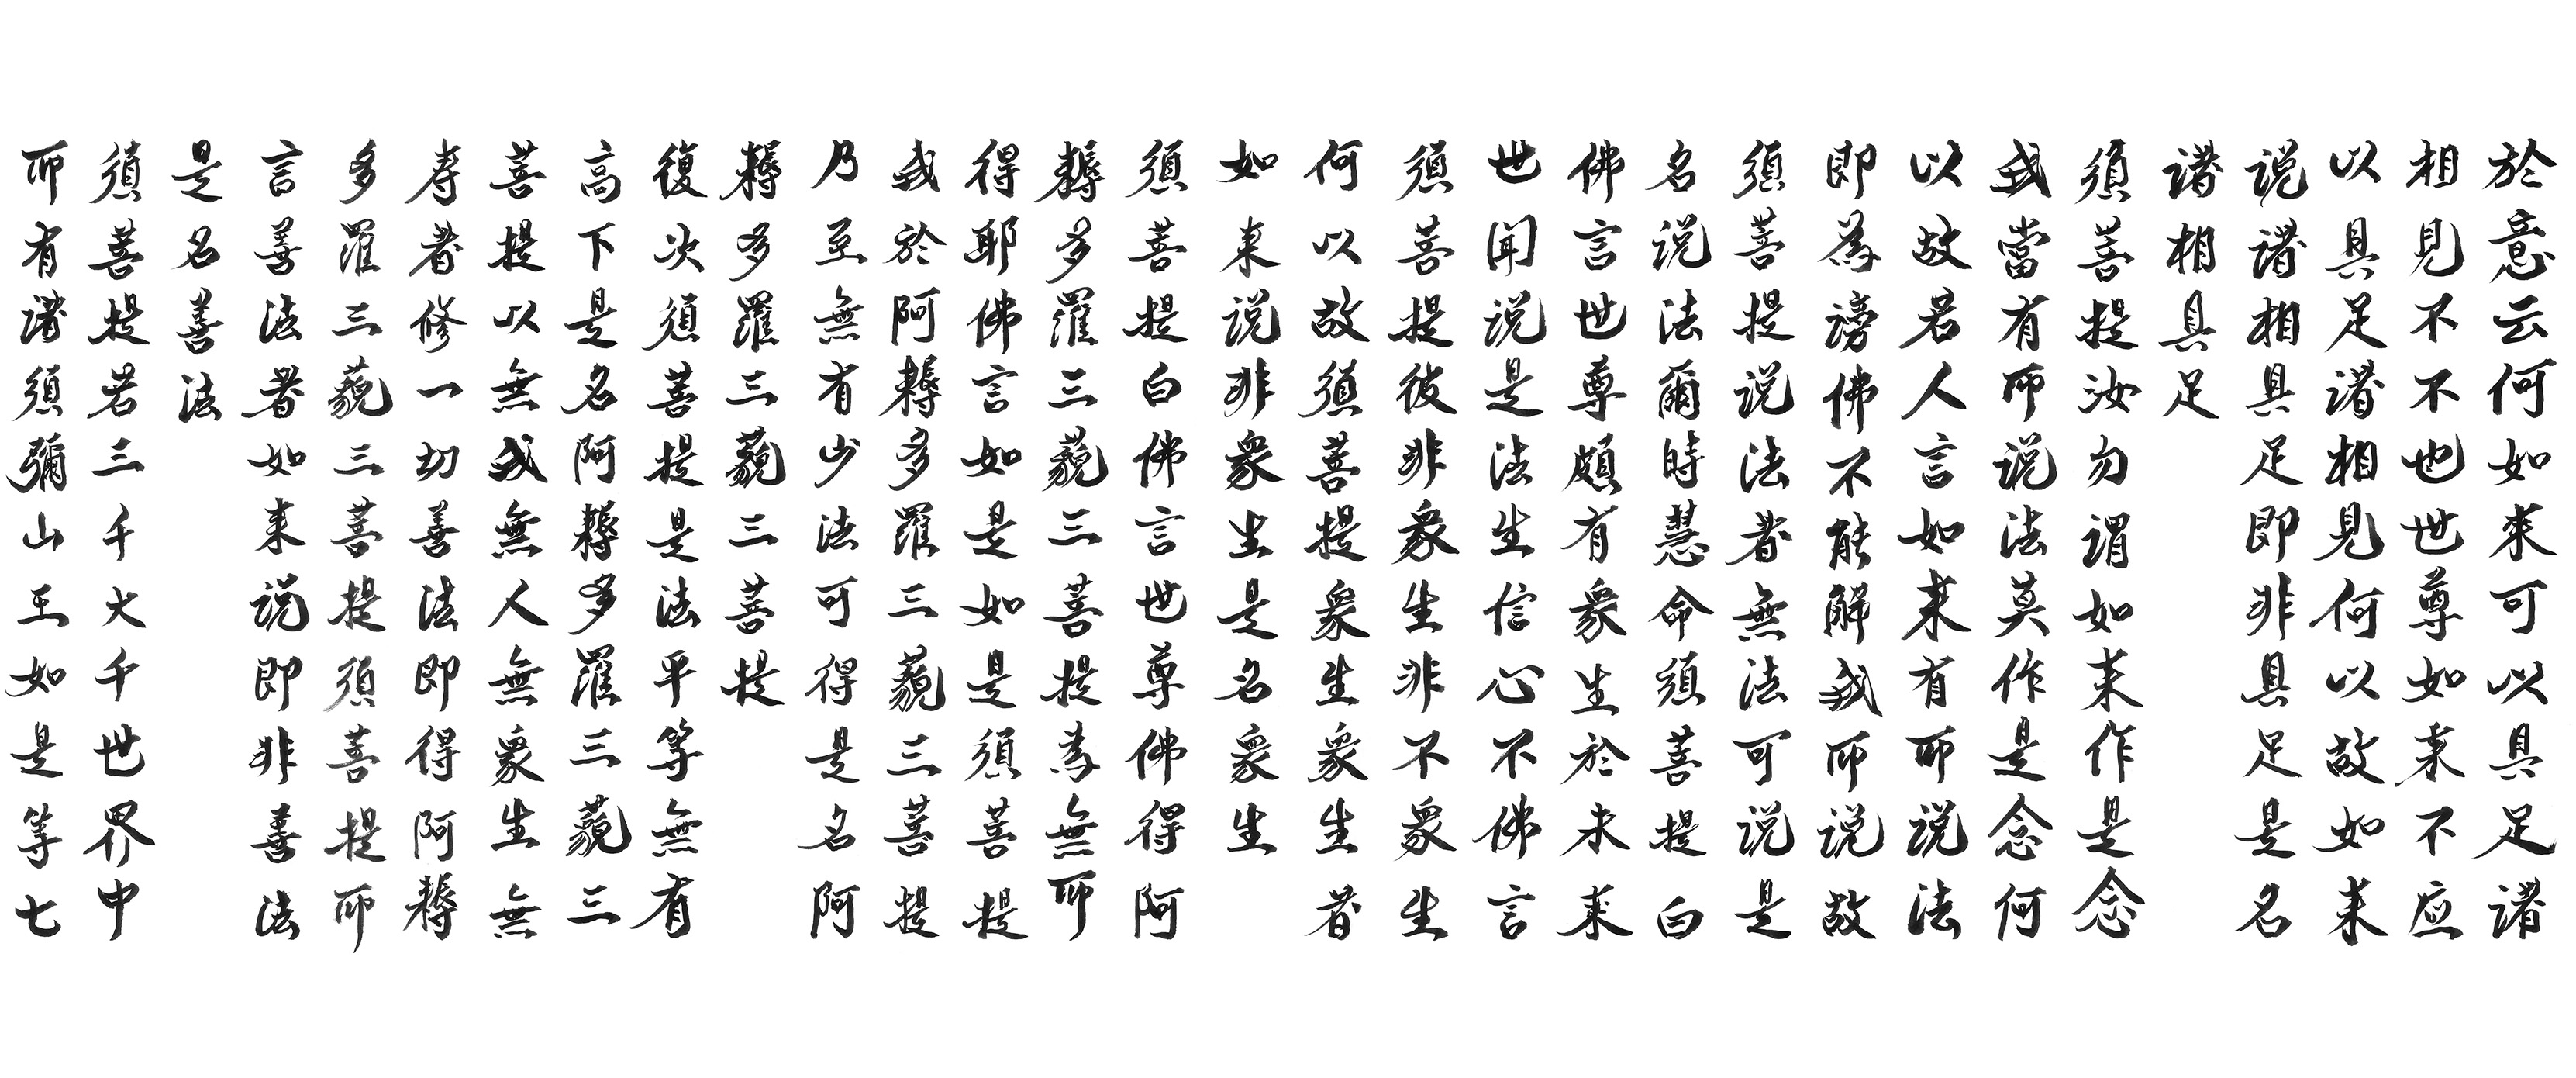 於意云何如來可以具足諸
相見不不也世尊如來不應
以具足諸相見何以故如來
說諸相具足即非具足是名
諸相具足
須菩提汝勿謂如來作是念
我當有所說法莫作是念何
以故若人言如來有所說法
即為謗佛不能解我所說故
須菩提說法者無法可說是
名說法爾時慧命須菩提白
佛言世尊頗有眾生於未來
世聞說是法生信心不佛言
須菩提彼非眾生非不眾生
何以故須菩提眾生眾生者
如來說非眾生是名眾生
須菩提白佛言世尊佛得阿
耨多羅三藐三菩提為無所
得耶佛言如是如是須菩提
我於阿耨多羅三藐三菩提
乃至無有少法可得是名阿
耨多羅三藐三菩提
復次須菩提是法平等無有
高下是名阿耨多羅三藐三
菩提以無我無人無眾生無
寿者修一切善法即得阿耨
多羅三藐三菩提須菩提所
言善法者如來說即非善法
是名善法
須菩提若三千大千世界中
所有諸須彌山王如是等七